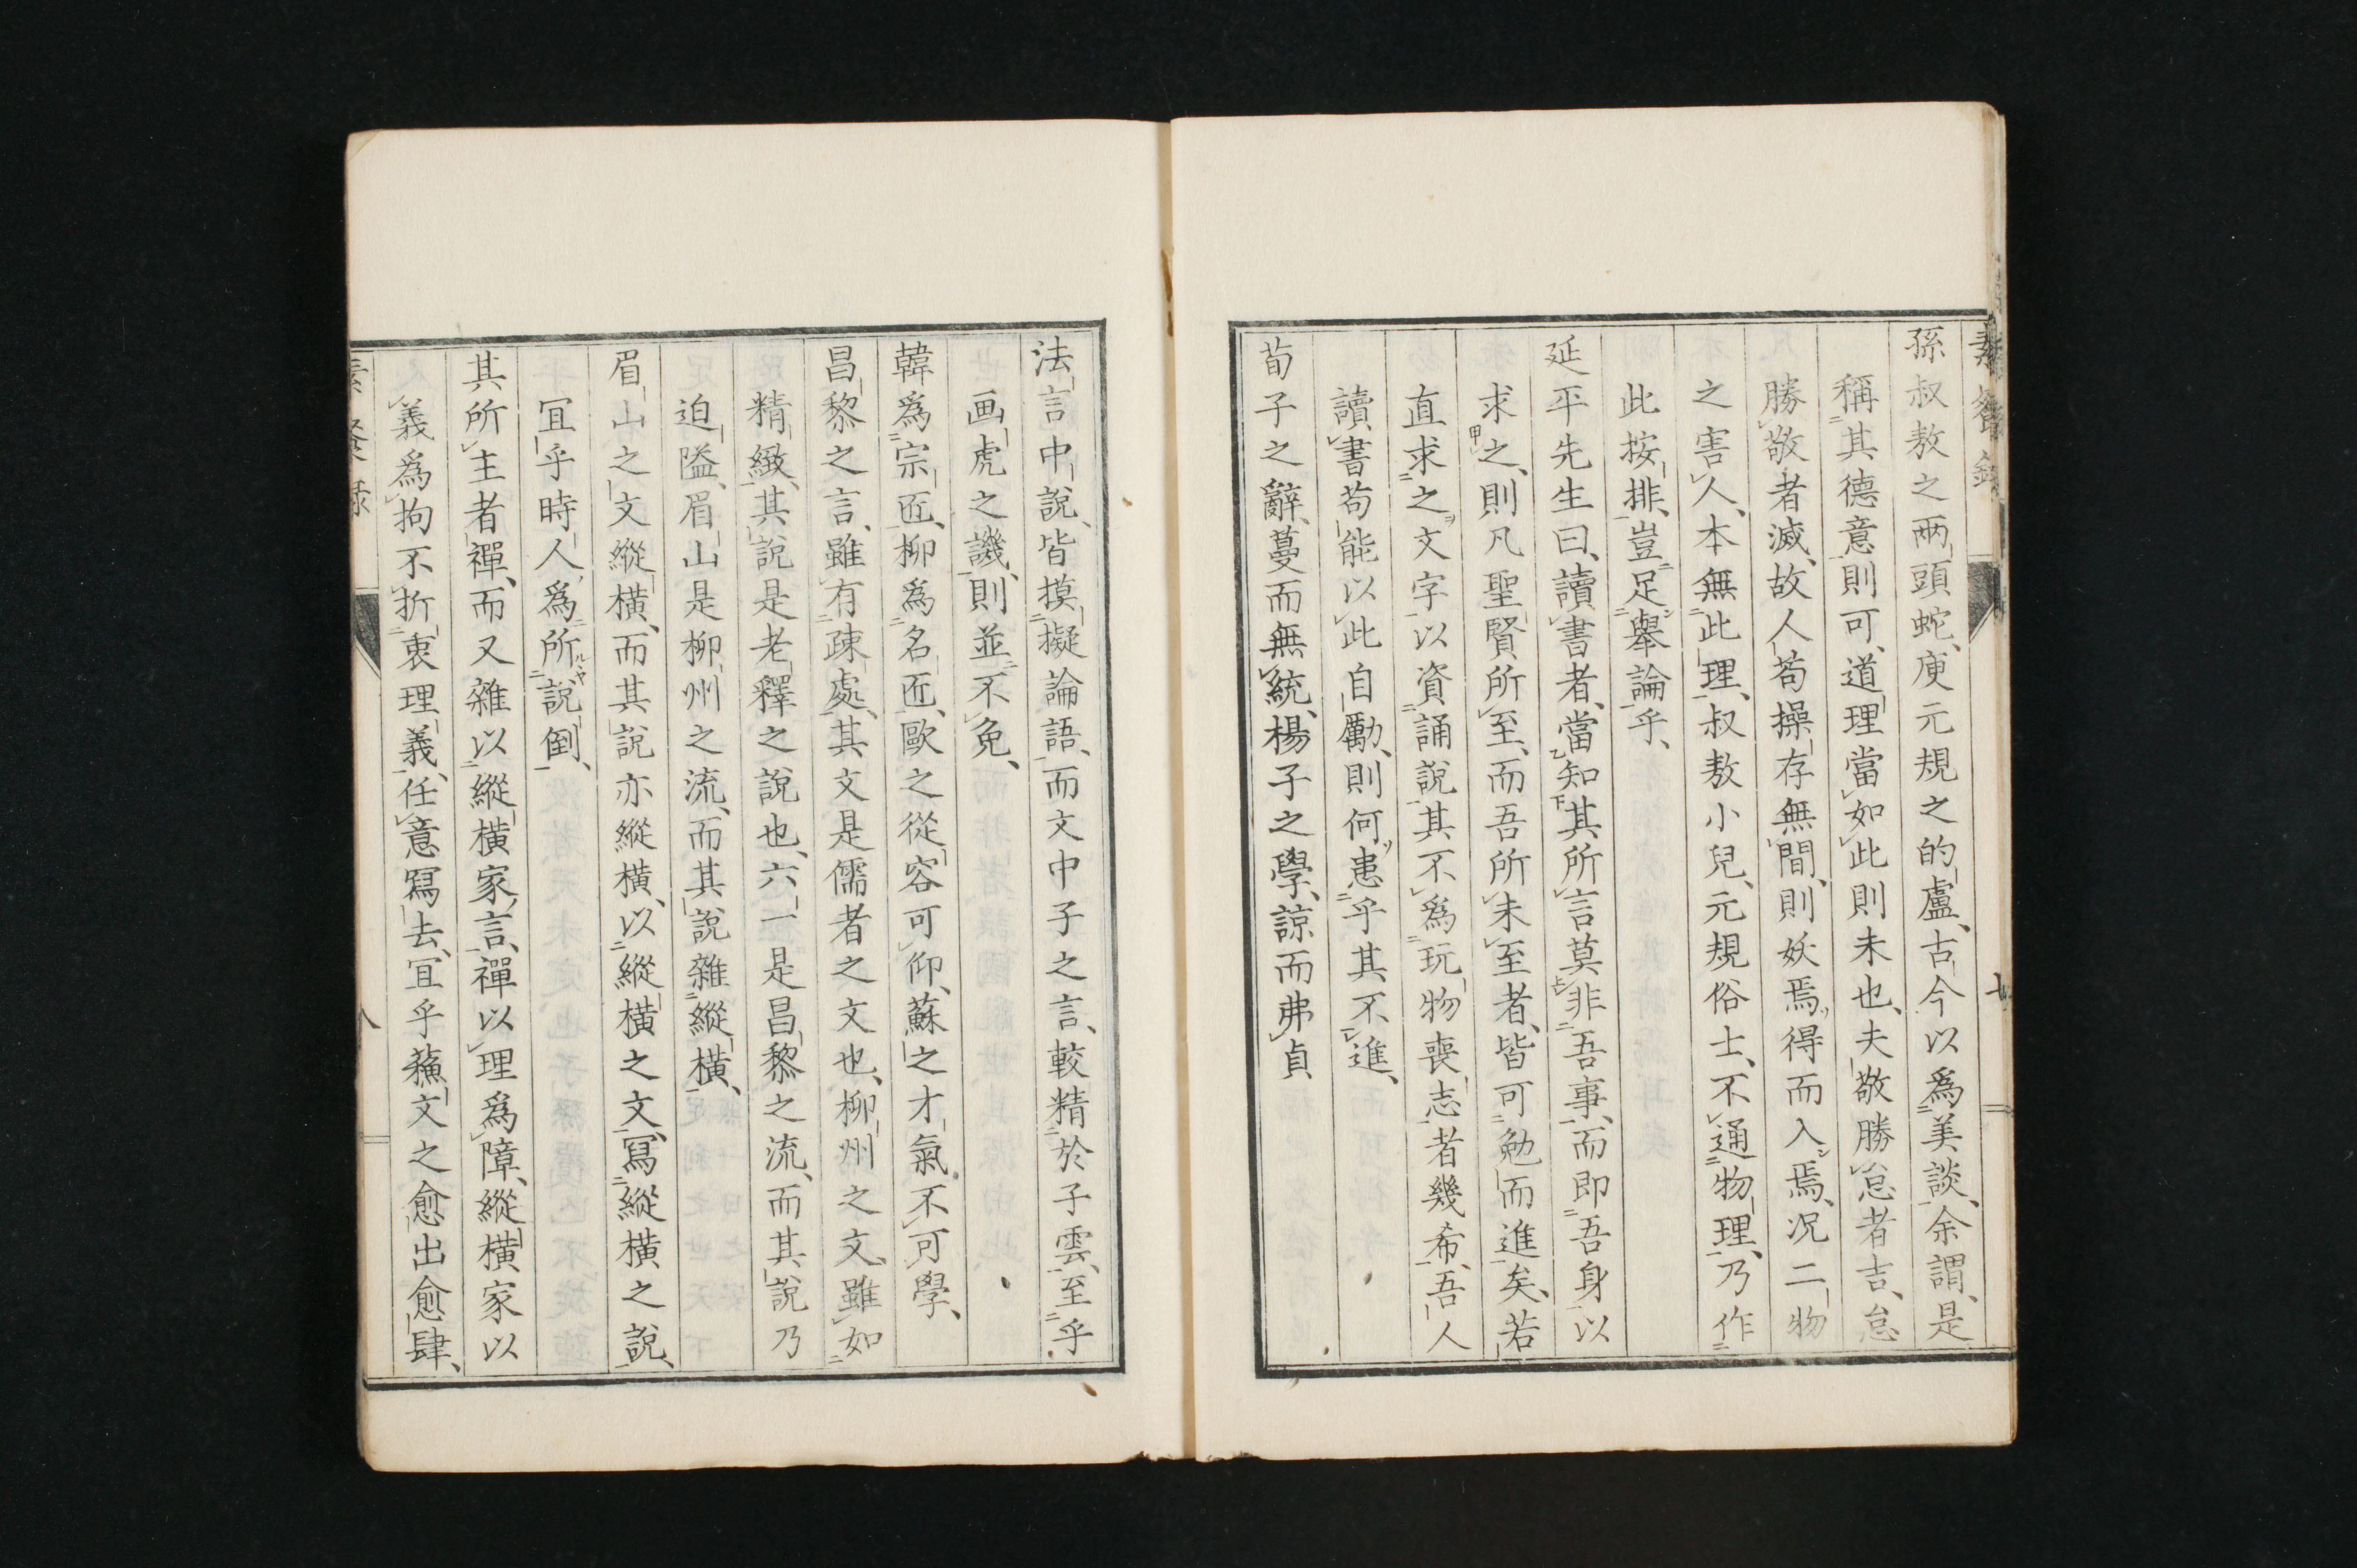 孫叔敖之兩頭蛇、庾元規之的盧、古今以爲美談、余謂、是
稱其德意則可、道理當如此則未也、夫敬勝怠者吉、怠
勝敬者滅、故人苟操存無間、則妖焉得而入焉、况二物
之害人、本無此理、叔敖小兒、元規俗士、不通物理、乃作
此按排、豈足舉論乎、
延平先生曰、讀書者、當知其所言莫非吾事、而即吾身以
求之、則凡聖賢所至、而吾所未至者、皆可勉而進矣、若
直求之文字、以資誦說、其不爲玩物喪志者幾希、吾人
讀書苟能以此自勵、則何患乎其不進、
荀子之辭、蔓而無統、楊子之學、諒而弗貞
法言中說、皆摸擬論語、而文中子之言、較精於子雲、至乎
画虎之譏、則並不免、
韓爲宗匠、柳爲名匠、歐之從容可仰、蘇之才氣不可學、
昌黎之言、雖有疎處、其文是儒者之文也、柳州之文、雖如
精緻、其說是老釋之說也、六一是昌黎之流、而其說乃
迫隘、眉山是柳州之流、而其說雜縱橫、
眉山之文縱橫、而其說亦縱橫、以縱橫之文、寫縱橫之說、
冝乎時人爲所說倒、
其所主者禪、而又雜以縱橫家言、禪以理爲障、縱橫家以
義爲拘、不折衷理義、任意寫去、冝乎蘓文之愈出愈肆、